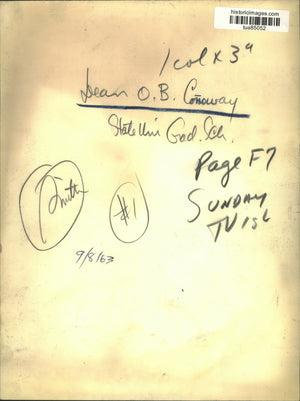 historicimages.com
tua85052
1 col x 3"
Dean O. B. Conaway
State Uni Grad. Sch.
Page F7
Smith
#1
SUNDAY
9/8/63